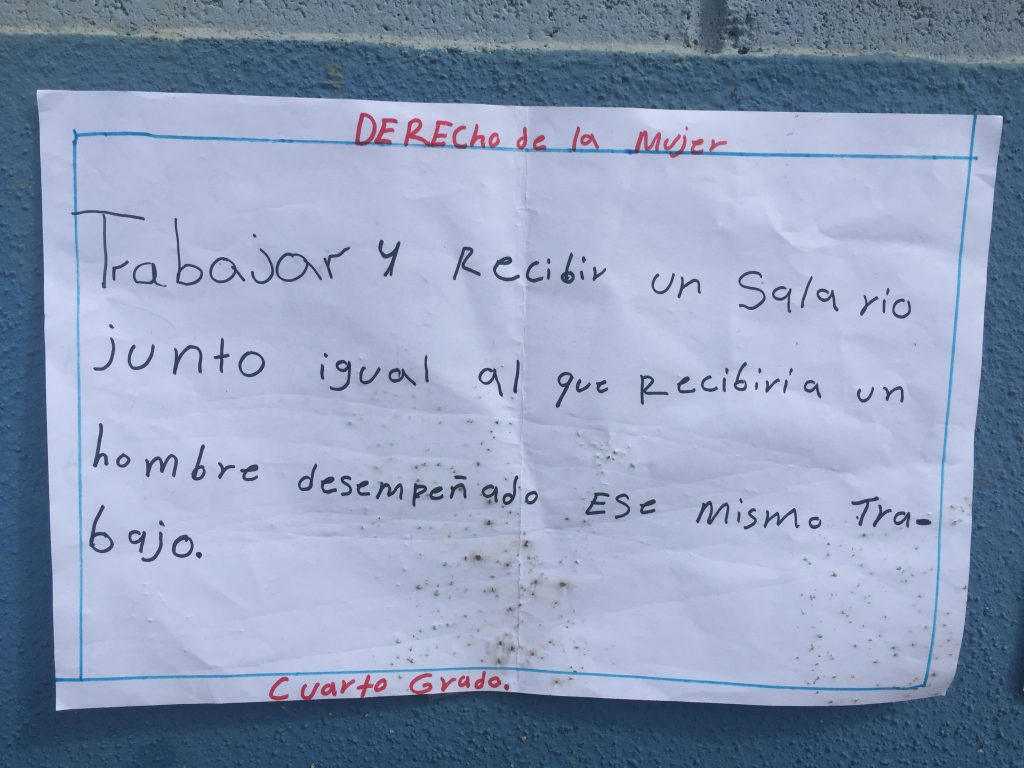 DERECho de la Mujer
Trabajar y Recibir un Salario
junto igual al que Recibiría un
hombre desempeñado ESE mismo Tra-
bajo.
Cuarto Grado.